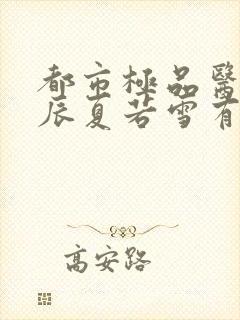 都市極品醫
辰夏若雪有
高安路